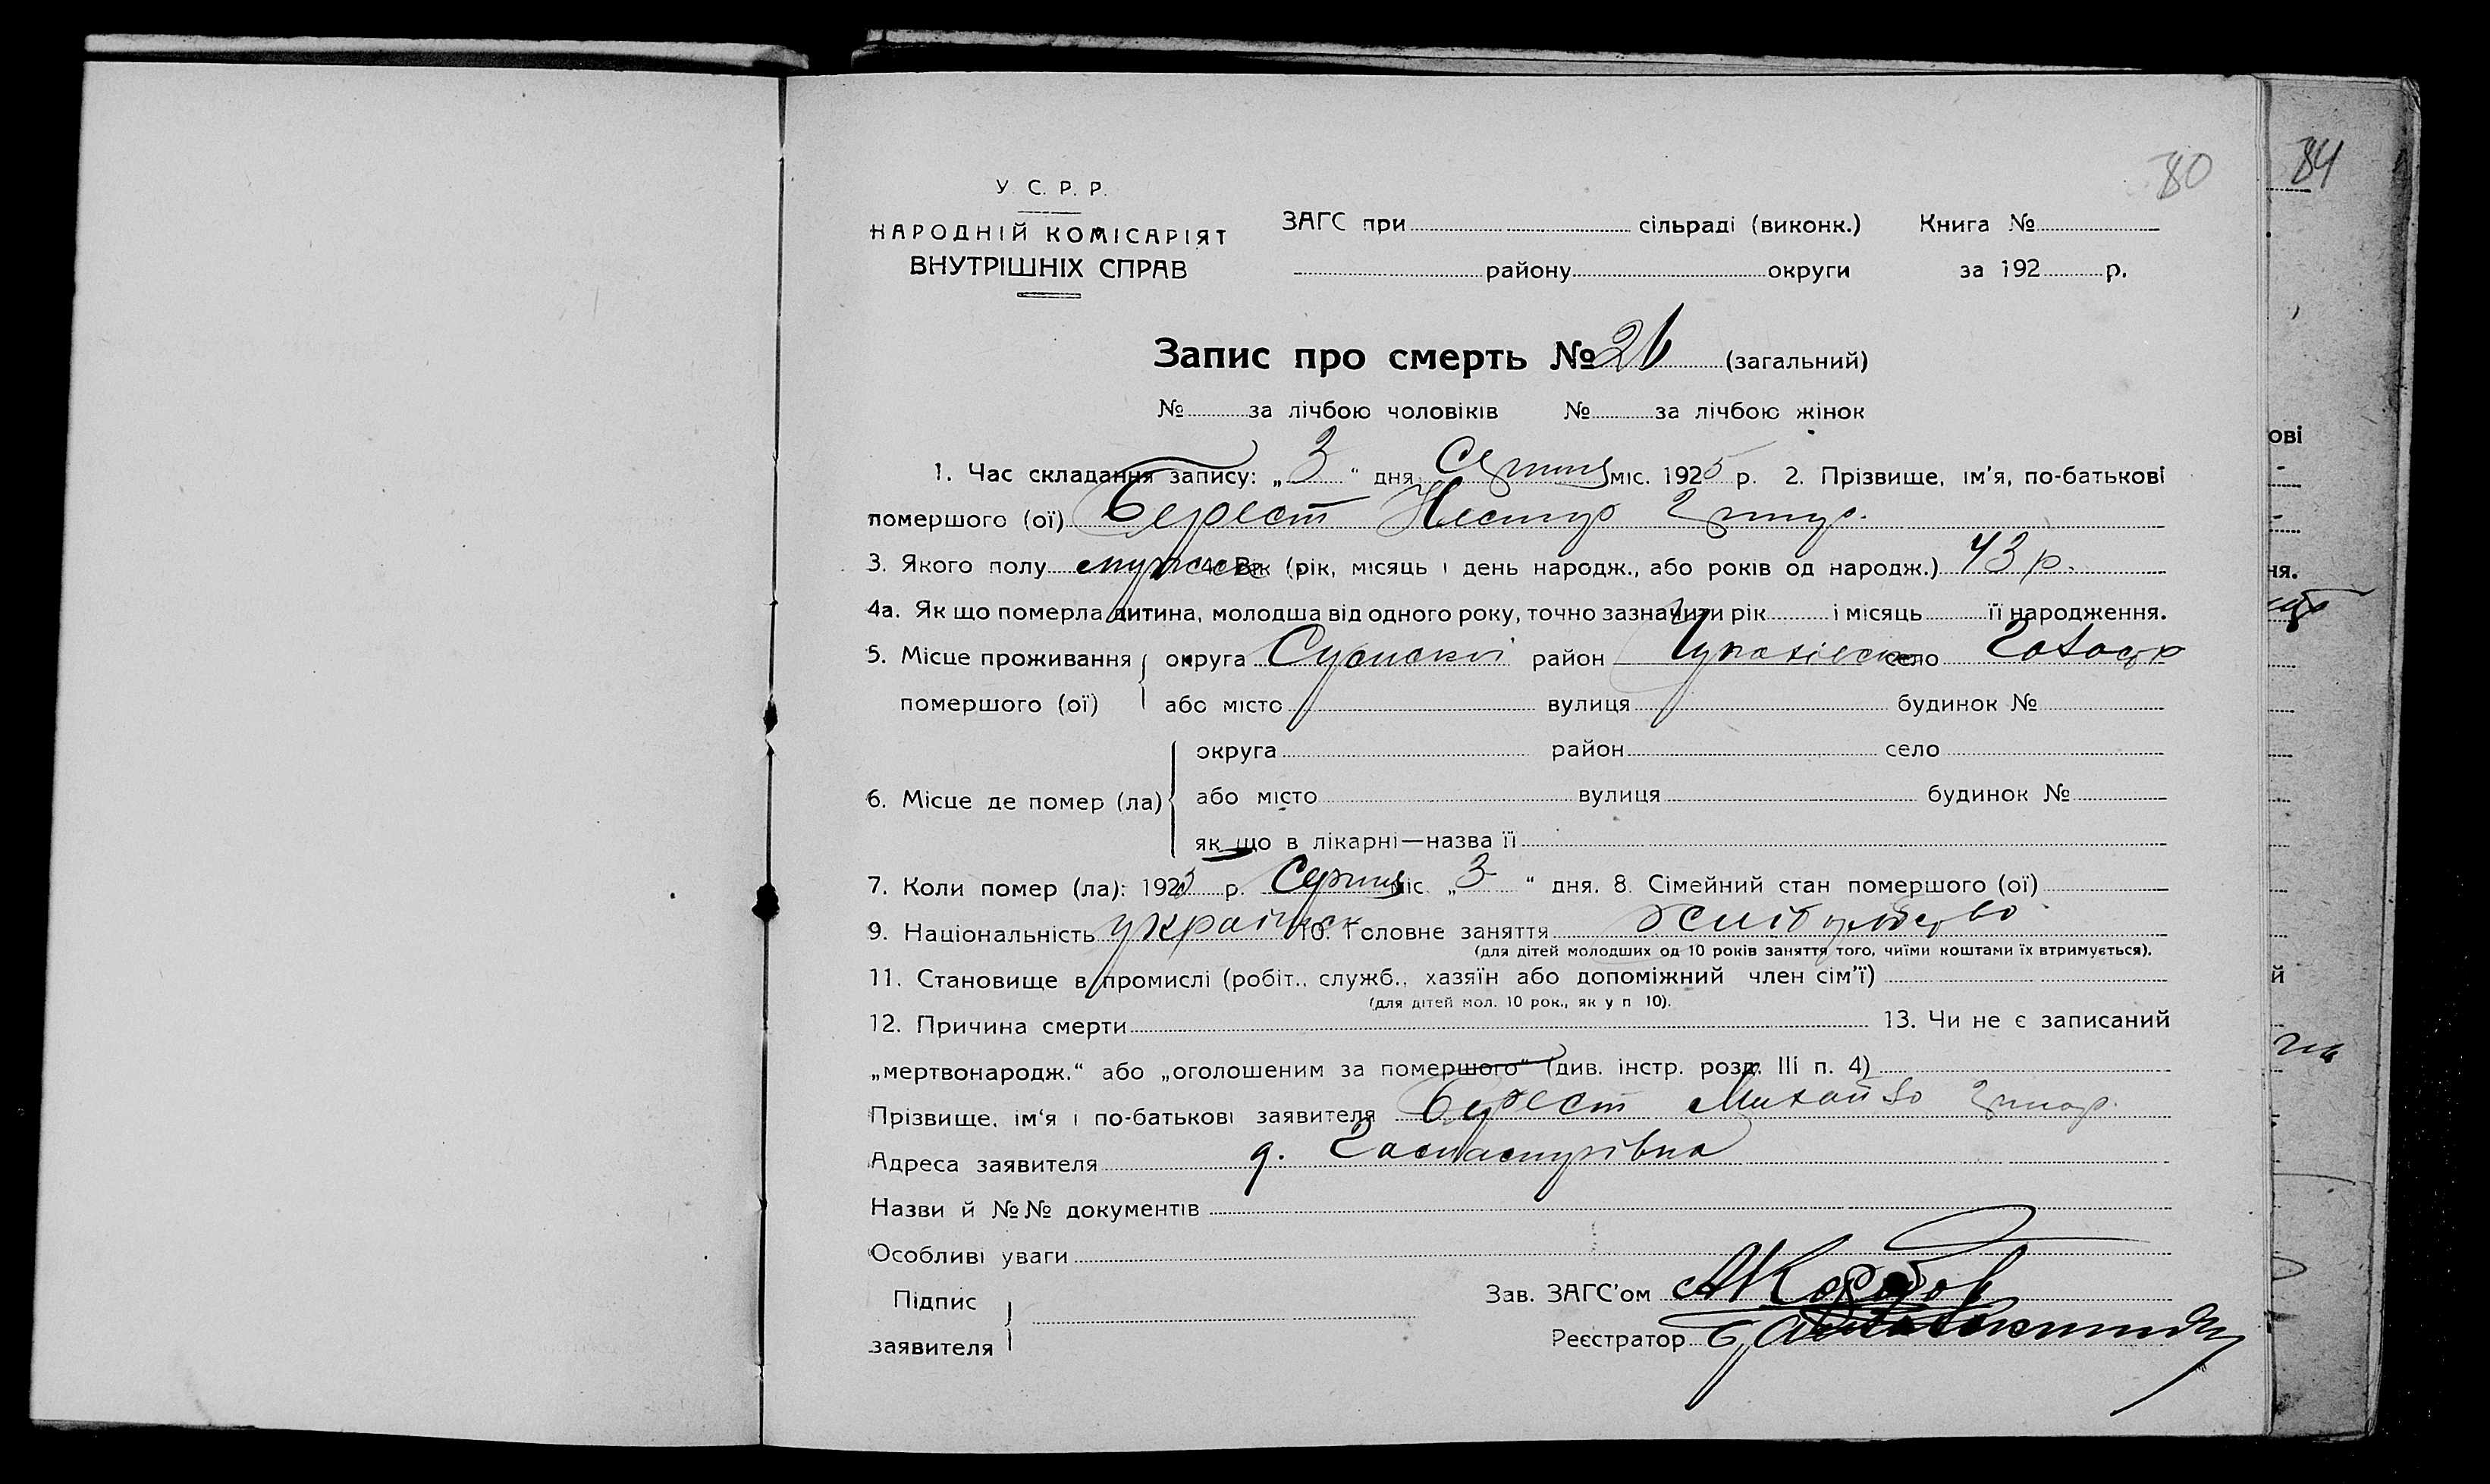 80
84
У. С. Р. Р.
НАРОДНІЙ КОМІСАРІЯТ
ВНУТРІШНІХ СПРАВ
ЗАГС при сільраді (виконк.) Книга №
району округи за 192 р.
Запис про смерть № 26 (загальний)
№ за лічбою чоловіків № за лічбою жінок
1. Час складання запису: „3“ дня Серпня міс. 1925 р. 2. Прізвище, ім'я, по-батькові
помершого (ої) Берест Нестир Григ.
3. Якого полу 4. Вік (рік, місяць і день народж., або років од народж.) 43 р.
4а. Як що померла дитина, молодша від одного року, точно зазначити рік і місяць її народження.
5. Місце проживання округа Сумської район село
помершого (ої) або місто вулиця будинок №
округа район село
6. Місце де помер (ла) або місто вулиця будинок №
як що в лікарні—назва її
7. Коли помер (ла): 1925 р. Серпня міс „3“ дня. 8. Сімейний стан помершого (ої)
9. Національність україн 10. Головне заняття
(для дітей молодших од 10 років заняття того, чиїми коштами їх втримується).
11. Становище в промислі (робіт., служб., хазяїн або допоміжний член сім'ї)
(для дітей мол. 10 рок., як у п 10).
12. Причина смерти 13. Чи не є записаний
„мертвонародж.“ або „оголошеним за помершого“ (див. інстр. розд. III п. 4)
Прізвище, ім'я і по-батькові заявителя Берест Михайло
Адреса заявителя
Назви й №№ документів
Особливі уваги
Підпис
заявителя
Зав. ЗАГС'ом
Реєстратор